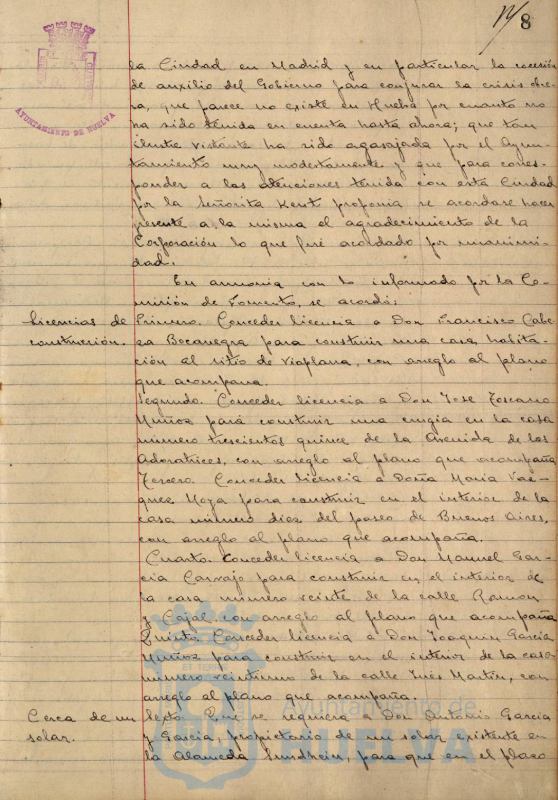 8
AYUNTAMIENTO DE HUELVA
la Ciudad en Madrid y en particular la cocesión
de auxilio del Gobierno para conjurar la crisis obre-
ra, que parece no existe en Huelva por cuanto no
ha sido tenida en cuenta hasta ahora; que tan
ilustre visitante ha sido agasajada por el Ayun-
tamiento muy modestamente y que para corres-
ponder a las atenciones tenida con esta Ciudad
por la Señorita Kent proponia se acordase hacer
presente a la misma el agradecimiento de la
Corporación lo que fué acordado por unanimi-
dad.
En armonia con lo informado por la Co-
misión de Fomento, se acordó:
Licencias de
construcción.
Primero. Conceder licencia a Don Francisco Cabe-
za Bocanegra para construir una casa habita-
ción al sitio de Viaplana, con arreglo al plano
que acompaña.
Segundo. Conceder licencia a Don José Toscano
Muñoz para construir una crugia en la casa
número trescientos quince de la Avenida de las
Adoratrices, con arreglo al plano que acompaña
Tercero. Conceder licencia a Doña Maria Vaz-
quez Moya para construir en el interior de la
casa número diez del paseo de Buenos Aires,
con arreglo al plano que acompaña.
Cuarto. Conceder licencia a Don Manuel Gar-
cia Carvajo para construir en el interior de
la casa número veinte de la calle Ramon
y Cajal con arreglo al plano que acompaña
Quinto. Conceder licencia a Don Joaquin Garcia
Muñoz para construir en el interior de la casa
número veintiuno de la calle Inés Martin, con
arreglo al plano que acompaña.
Cerca de un
solar.
Sexto. Que se requiera a Don Antonio Garcia
y Garcia, propietario de un solar existente en
la Alameda Sundheim, para que en el plazo
Ayuntamiento de
HUELVA